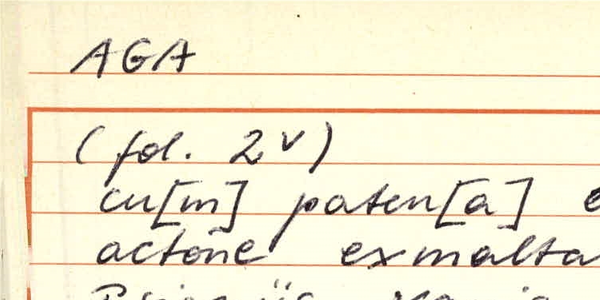 AGA
(fol. 2v)
cu[m] paten[a]
actone exmalta